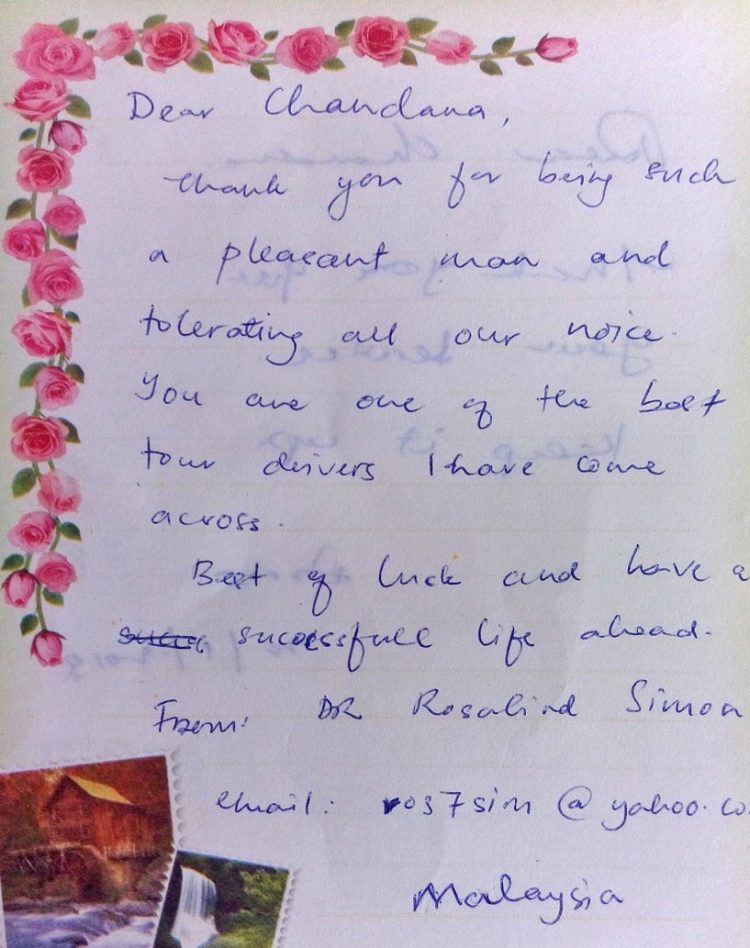 Dear Chandana,
Thank you for being such
a pleasant man and
tolerating all our noice.
You are one of the best
tour drivers I have come
across.
Best of luck and have a
succes, successfull life ahead.
From: DR Rosalind Simon
email: ros7sim@yahoo.co
Malaysia